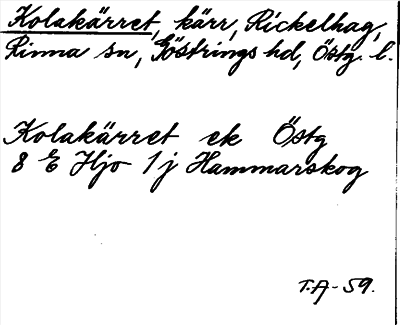 Kolakärret, kärr, Rickelhag,
Rinna sn, Göstrings hd, Östg. l.
Kolakärret ek Östg
8 E Hjo 1 j Hammarskog
T.A-59.